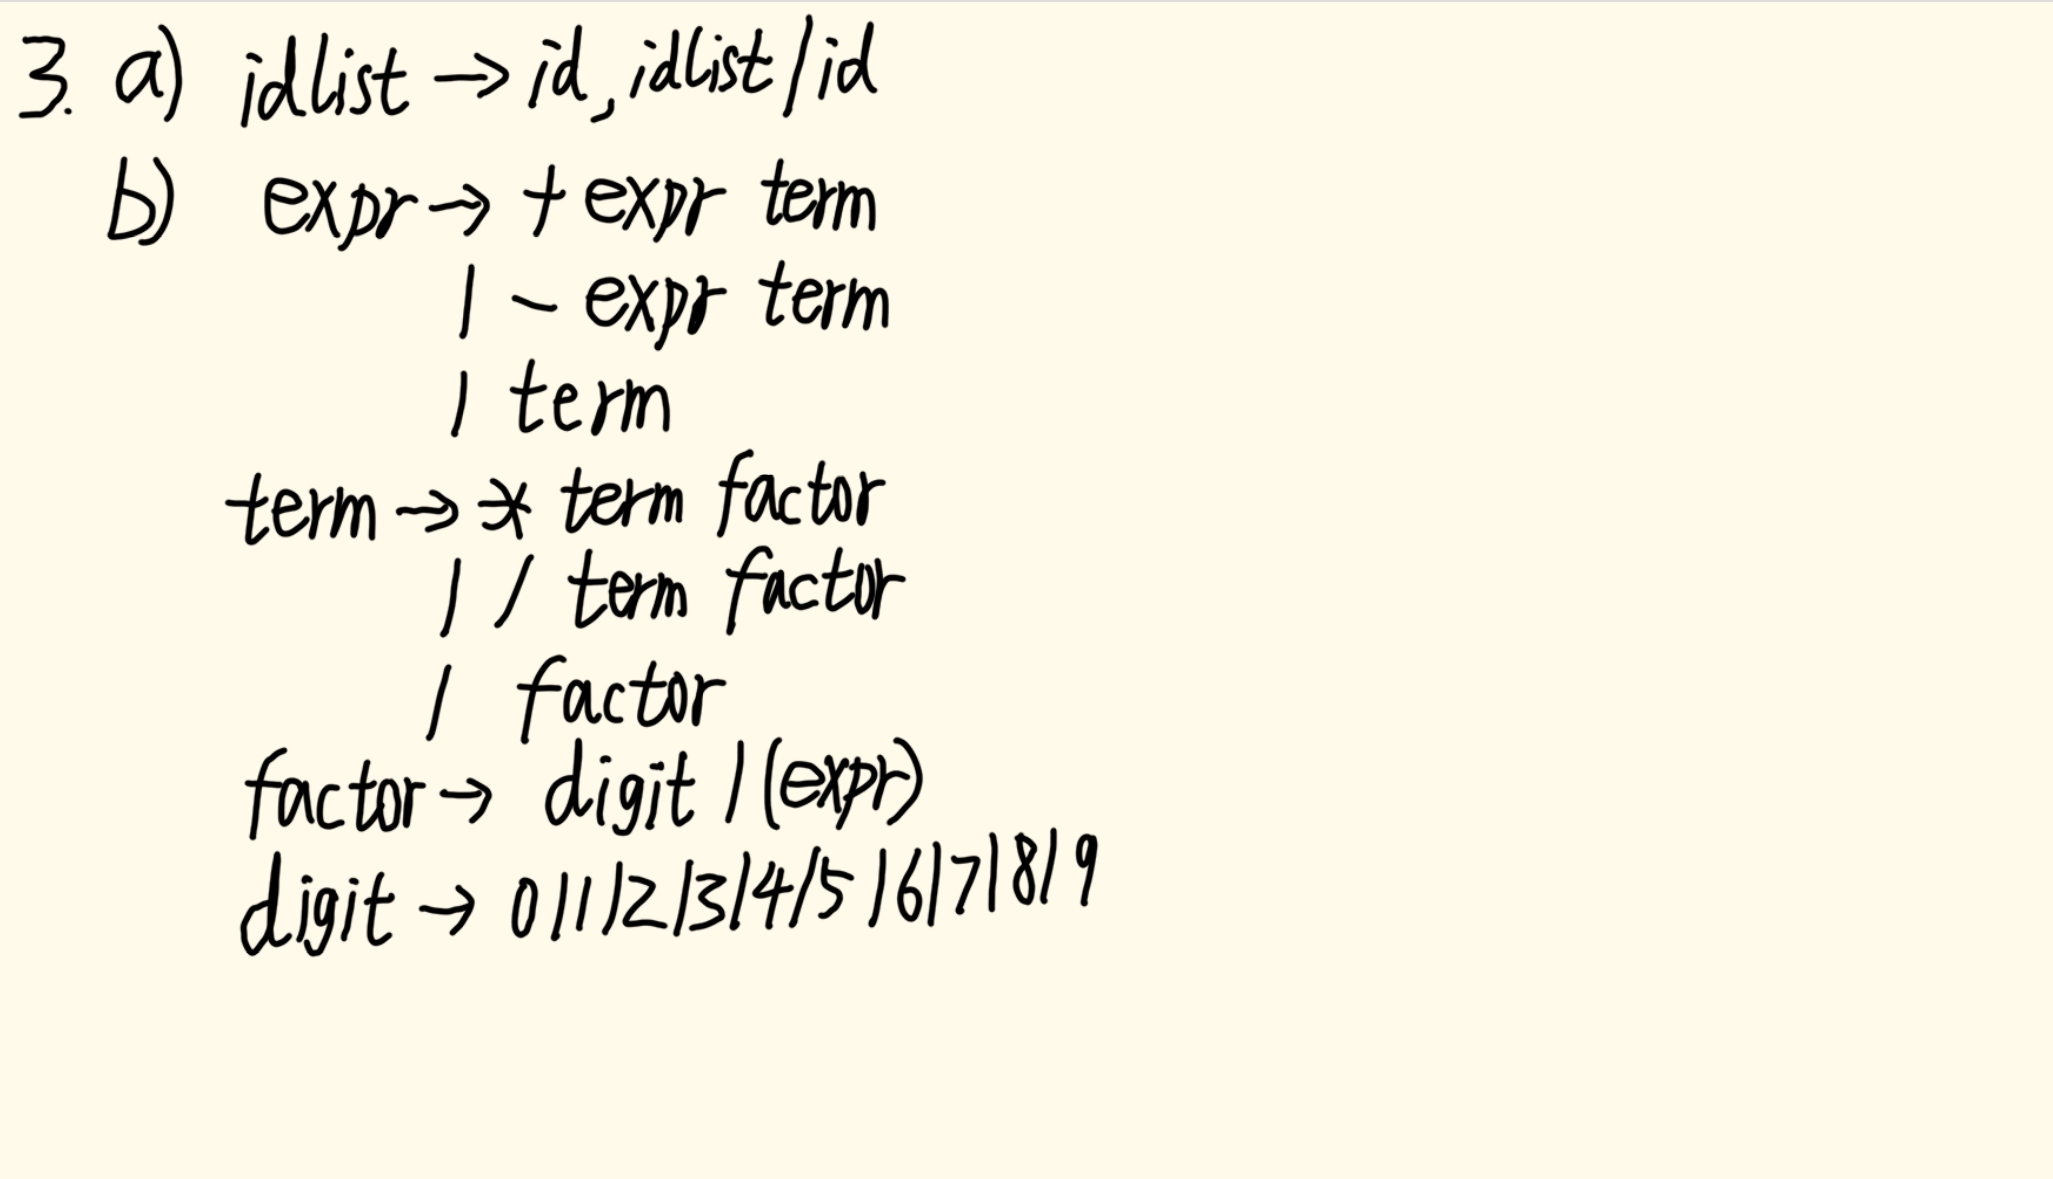 3. a) idlist → id, idlist | id
b) expr → + expr term
| - expr term
| term
term → * term factor
| / term factor
| factor
factor → digit | (expr)
digit → 0|1|2|3|4|5|6|7|8|9